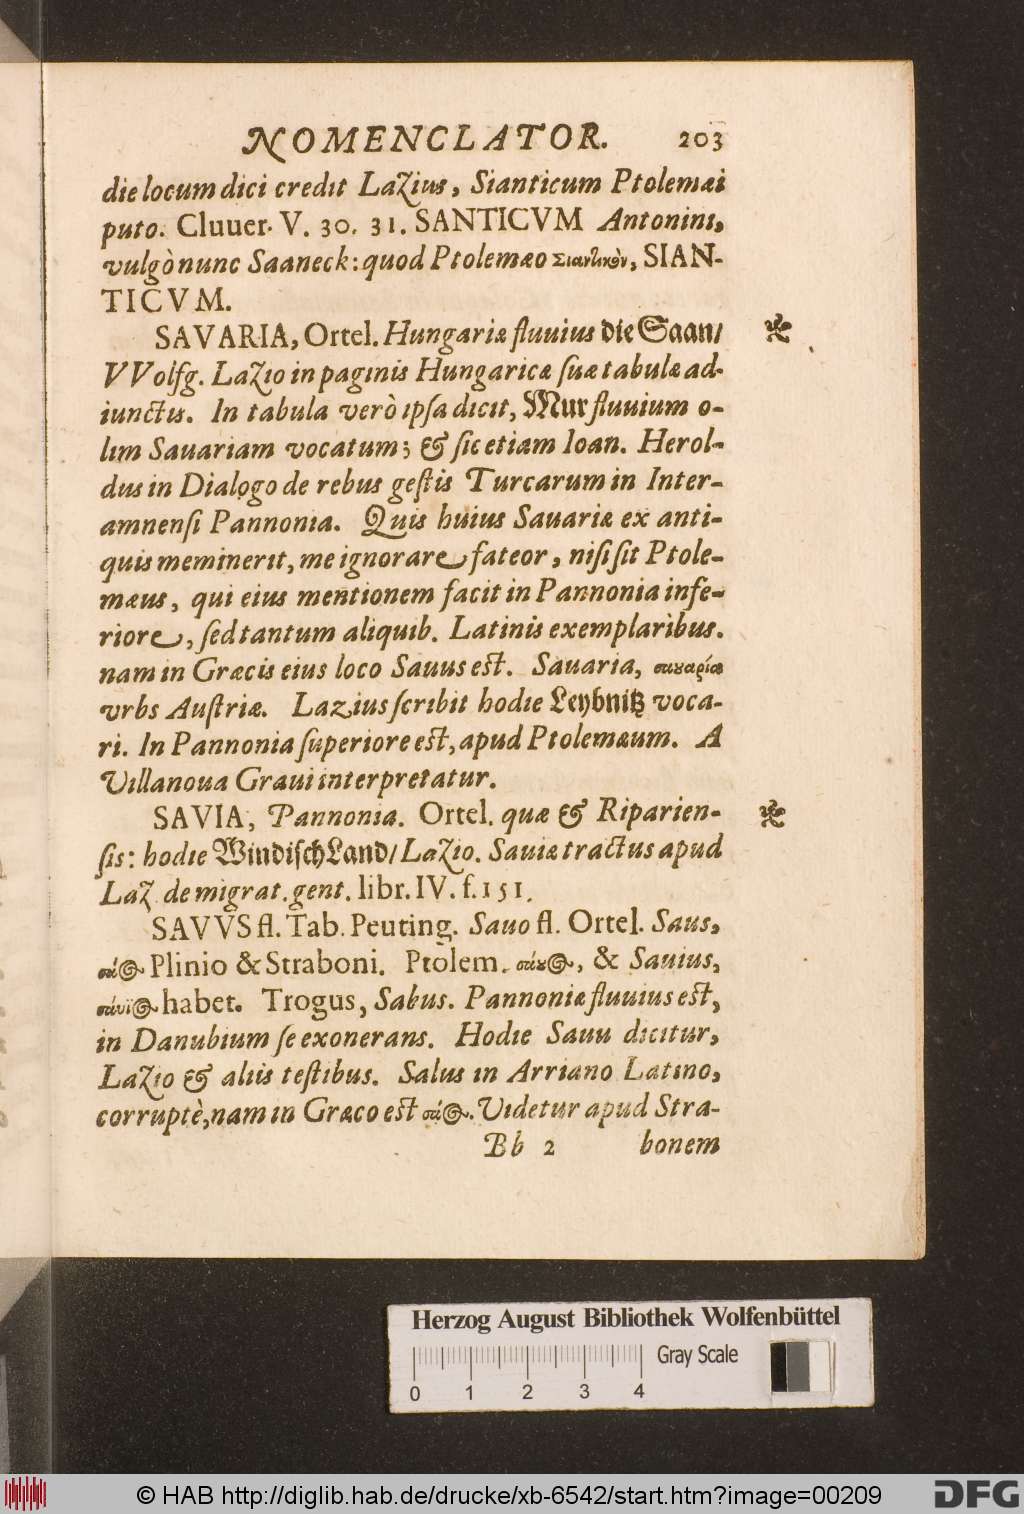 NOMENCLATOR. 203
die locum dici credit Lazius, Sianticum Ptolemæi
puto. Cluuer. V. 30. 31. SANTICVM Antonini,
vulgò nunc Saaneck: quod Ptolemæo Σιαντικὸν, SIAN-
TICVM.
SAVARIA, Ortel. Hungariæ fluuius die Saan/
VVolfg. Lazio in paginis Hungaricæ ſuæ tabulæ ad-
iunctis. In tabula verò ipſa dicit, Mur fluuium o-
lim Sauariam vocatum; & ſic etiam Ioan. Herol-
dus in Dialogo de rebus geſtis Turcarum in Inter-
amnenſi Pannonia. Quis huius Sauariæ ex anti-
quis meminerit, me ignorare fateor, niſi ſit Ptole-
mæus, qui eius mentionem facit in Pannonia infe-
riore, ſed tantum aliquib. Latinis exemplaribus.
nam in Græcis eius loco Sauus est. Sauaria, σαυαρία
vrbs Auſtriæ. Lazius ſcribit hodie Leybnitz voca-
ri. In Pannonia ſuperiore est, apud Ptolemæum. A
Villanoua Graui interpretatur.
SAVIA, Pannonia. Ortel. quæ & Riparien-
ſis: hodie Windiſch Land/ Lazio. Sauiæ tractus apud
Laz. de migrat. gent. libr. IV. f. 151.
SAVVS fl. Tab. Peuting. Sauo fl. Ortel. Saus,
σά⊙ Plinio & Straboni. Ptolem. σάυ⊙, & Sauius,
σάυϊ⊙ habet. Trogus, Sabus. Pannoniæ fluuius est,
in Danubium ſe exonerans. Hodie Sauu dicitur,
Lazio & aliis teſtibus. Salus in Arriano Latino,
corruptè, nam in Græco est σά⊙. Videtur apud Stra-
Bb 2 bonem
Herzog August Bibliothek Wolfenbüttel
Gray Scale
0 1 2 3 4
© HAB http://diglib.hab.de/drucke/xb-6542/start.htm?image=00209
DFG